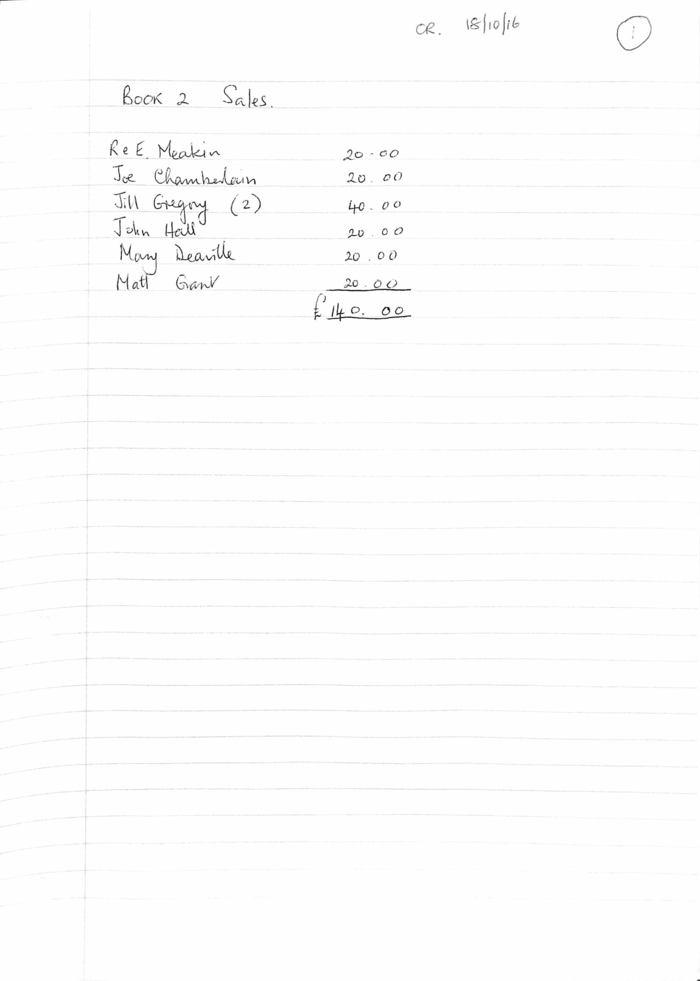 CR. 18/10/16 1
BOOK 2 Sales.
R e E. Meakin 20-00
Joe Chamberlain 20.00
Jill Gregory (2) 40.00
John Hall 20.00
Mary Deaville 20.00
Matt Grant 20.00
£140.00